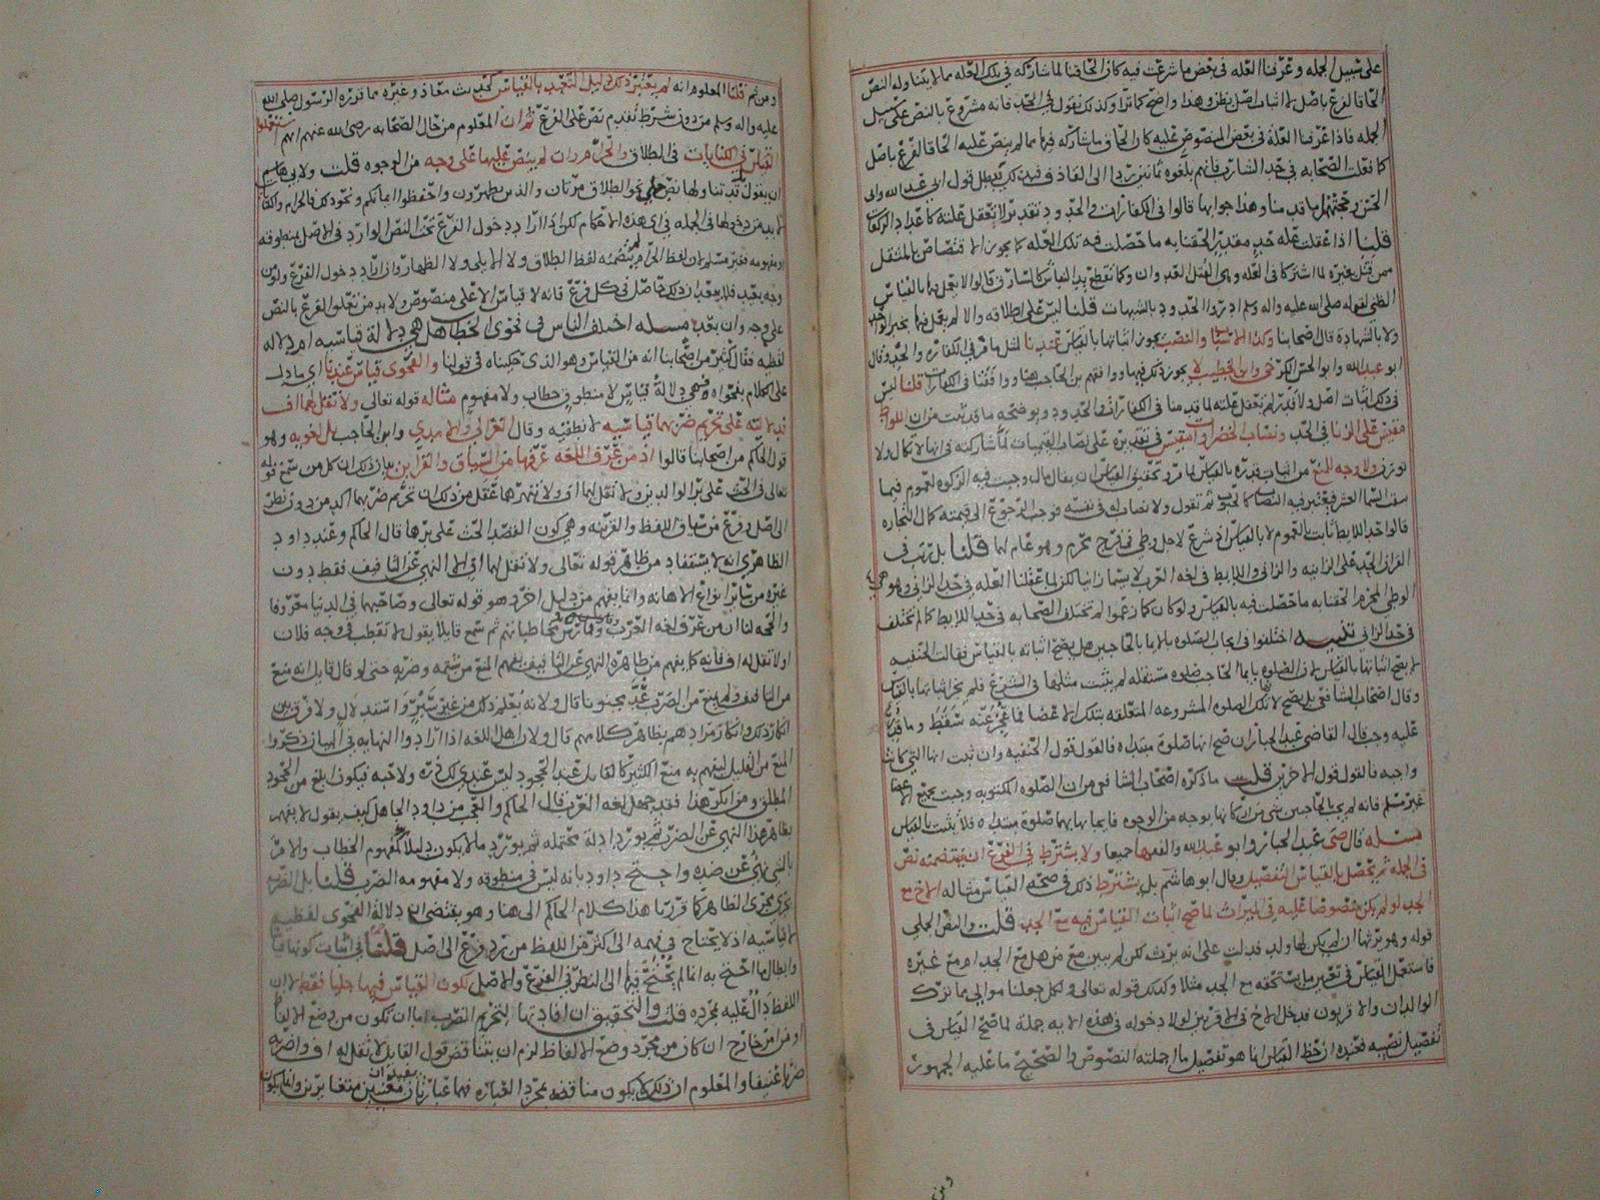 على سبيل الجمله وعرفنا العله في بعض ما شرعت فيه كان الحاقنا لما شاركه في تلك العله مما لا يتناوله النص
الحاقا لفرع باصل لا اثبات اصل بنظر وهذا واضح كما ترا وكذلك نقول في الحد فانه مشروع بالنص على سبيل
الجمله فاذا عرفنا العلة في بعض المنصوص عليه كان الحاق ما شاركه فيها مما لم ينص عليه الحاقا لفرع باصل
كما فعلت الصحابه في حد الشارب فانهم بلغوه ثمانين ردا الى القاذف فبذلك يبطل قول ابي عبد الله وابي
الحسن وحجتهم ما قدمنا وهذا جوابها قالوا في الكفارات والحدود تقدير لا تعقل علته كاعداد الركعات
قلنا اذا عقلت عله حد مقدر الحقنا به ما حصلت فيه تلك العله كما يجوز الاقتصاص بالمثقل
ممن قتل بغيره لما اشتركا في العله وهي القتل العدوان وكما تقطع يد النباش كالسارق قالوا لا يعمل بها بالقياس
الظني لقوله صلى الله عليه واله وسلم ادرؤا الحدود بالشبهات قلنا ليس على اطلاقه والا لم يعمل فيها بخبر الواحد
ولا بالشهادة قال اصحابنا وكذا الاسباب والنصب يجوز اثباتها بالقياس عندنا لمثل ما مر في الكفارات والحدود وقال
ابو عبد الله وابو الحسن الكرخي وابن الخطيب لا يجوز ذلك فيها ووافقهم بن الحاجب هنا ووافقنا في الكفارات قلنا ليس
في ذلك اثبات اصل ولا تقدير لم تعقل علته لما قدمنا في الكفارات والحدود ويوضحه ما قد ثبت من ان اللواط
مقيس على الزنا في الحد ونصاب الخضراوات مقيس في تقديره على نصاب القيميات لما شاركته في انها لا تكال ولا
توزن ولا وجه للمنع من اثبات قدره بالقياس لما مر وتحقيق القياس ان يقال مال وجبت فيه الزكوه لعموم فيما
سقت السماء العشر فيعتبر فيه النصاب كالحبوب ثم نقول ولا نصاب له في نفسه فوجب الرجوع الى قيمته كمال التجاره
قالوا حد اللايط ثابت بالعموم لا بالقياس اذ شرع لاجل وطي في فرج محرم وهو عام لهما قلنا بل ترتب في
القران الحد على الزانيه والزاني واللايط في لغه العرب لا يسما زانيا لكن لما عقلنا العله في حد الزاني وهو هي
الوطي المحرم الحقنا به ما حصلت فيه بالقياس ولو كان كما زعموا لم تختلف الصحابه في حد اللايط كما لم تختلف
في حد الزاني تنبيه اختلفوا في ايجاب الصلوه بالايما بالحاجبين هل يصح اثباته بالقياس فقالت الحنفيه
لا يصح اثباتها بالقياس لان الصلوه بايما الحاجب صلوه مستقله لم يثبت مثلها في الشرع فلم يجز اثباتها بالقياس
وقال اصحاب الشافعي بل يصح لانها تلك الصلوه المشروعه المتعلقه بتلك الاعضا فما عجز عنه سقط وما قدر
عليه وجب قال القاضي عبد الجبار ان صح انها صلوة مبتداه فالقول قول الحنفيه وان ثبت انها التي كانت
واجبه فالقول قول الاخرين قلت ما ذكره اصحاب الشافعي من ان الصلوه المكتوبه وجبت بجميع الاعضا
غير مسلم فانه لم يجب بالحاجبين شي من اركانها بوجه من الوجوه فايجابها بهما صلوة مبتداه فلا يثبت بالقياس
مسئله قال عبد الجبار وابو عبد الله والفقها جميعا ولا يشترط في الفرع ان يتضمنه نص
في الجمله ثم يحصل بالقياس التفصيل وقال ابو هاشم بل يشترط ذلك في صحه القياس مثاله الاخ مع
الجد لو لم يكن منصوصا عليه في الميراث لما صح اثبات القياس فيه مع الجد قلت والنص الجملي
قوله وهو يرثها ان لم يكن لها ولد فدلت على انه يرث لكن لم يبين مع من هل مع الجد ام مع غيره
فاستعمل القياس في تعيين ما يستحقه مع الجد مثلا وكذلك قوله تعالى ولكل جعلنا موالي مما ترك
الوالدان والاقربون فدخل الاخ في الاقربين لولا دخوله في هذه الايه جملة لما صح القياس في
تفصيل نصيبه فعنده ان حظ القياس انما هو تفصيل ما اجملته النصوص والصحيح ما عليه الجمهور
ومن ثم قلنا المعلوم انه لم يعتبر ذلك دليل التعبد بالقياس كحديث معاذ وغيره مما قرره الرسول صلى الله
عليه واله وسلم من دون شرط تقديم نص على الفرع ثم ان المعلوم من حال الصحابه رضي الله عنهم انهم استعملوا
القياس في الكنايات في الطلاق والحرام وان لم ينص عليها على وجه من الوجوه قلت ولابي هاشم
ان يقول قد تناولها نص جملي نحو الطلاق مرتان والذين يظهرون واحفظوا ايمانكم ونحو ذلك فالحرام والكنايات
لا بد من دخولها في الجمله في اي هذه الاحكام لكن اذا اراد دخول الفرع تحت النص الوارد في الاصل بمنطوقه
او مفهومه فغير مسلم لان لفظ الحرام لم يتضمنه لفظ الطلاق ولا الايلى ولا الظهار وان اراد دخول الفرع ولو من
وجه بعيد فلا يبعد ان ذلك حاصل في كل فرع فانه لا قياس الا على منصوص ولا بد من تعلق الفرع بالنص
على وجه وان بعد مسئله اختلف الناس في فحوى الخطاب هل هي دلالة قياسيه ام دلاله
لفظيه فقال كثير من اصحابنا انه من القياس وهو الذي حكيناه في قولنا والفحوى قياس عندنا اي ما دل
على الكلام بفحواه فهي دلالة قياس لا منطوق خطاب ولا مفهوم مثاله قوله تعالى ولا تقل لهما اف
فدلالته على تحريم ضربهما قياسيه لا نطقيه وقال الغزالي والامدي وابن الحاجب بل لغويه وهو
قول الحاكم من اصحابنا قالوا اذ من عرف اللغه عرفها من السياق والقراين بيان ذلك ان كل من سمع قوله
تعالى في الحث على بر الوالدين ولا تقل لهما اف ولا تنهرهما عقل من ذلك ان تحريم ضربهما اكد من دون نظر
الى اصل وفرع من سياق اللفظ والقرينه وهي كون القصد الحث على برهما قال الحاكم وعند داود
الظاهري انه لا يستفاد من ظاهر قوله تعالى ولا تقل لهما اف الا النهي عن التافيف فقط دون
غيره من سائر انواع الاهانه وانما يفهم من دليل اخر وهو قوله تعالى وصاحبهما في الدنيا معروفا
والحجه لنا ان من عرف لغه العرب ومارس مخاطباتهم ثم سمع قايلا يقول لا تقطب في وجه فلان
او لا تقل له اف فانه كما يفهم من ظاهره النهي عن التافيف يفهم المنع من شتمه وضربه حتى لو قال قايل انه منع
من التافيف ولم يمنع من الضرب عد مجنونا قال ولانه يعلم ذلك من غير سبر واستدلال ولا فرق بين
انكار ذلك وانكار مرادهم بظاهر كلامهم قال ولان اهل اللغه اذا ارادوا النهايه في البيان ذكروا
المنع من القليل ليفهم به منع الكثير كالقايل عند الجحود ليس عندي لك ذره ولا حبه فيكون ابلغ من الجحود
المطلق ومن انكر هذا فقد جهل لغه العرب قال الحاكم والعجب من داود الجاهل كيف يقول لا يفهم
بظاهر هذا النهي عن الضرب ثم يورد ادلة محتمله ثم يورد ما لا يكون دليلا كمفهوم الخطاب والامر
بالشي نهي عن ضده واحتج داود بانه ليس في منطوقه ولا مفهومه الضرب قلنا بل الضرب
جرى مجرى الظاهر كما قررنا هذا كلام الحاكم الى هنا وهو يقتضي ان دلالة الفحوى لفظيه
لا قياسيه اذ لا يحتاج في فهمه الى اكثر من اللفظ من رد فرع الى اصل قلنا في اثبات كونها قياسا
وابطال ما احتج به انا لم يحتج فيها الى النظر في الفرع والاصل لكون القياس فيها جليا فقط لا ان
اللفظ دال عليه بمجرده قلت والتحقيق ان افادتها لتحريم الضرب اما ان تكون من وضع الالفاظ
او من امر خارج ان كان من مجرد وضع الالفاظ لزم ان يتناقض قول القايل لا تقل له اف واضربه
ضربا عنيفا والمعلوم ان ذلك لا يكون مناقضه بمجرد العباره فهما عبارتان يفيدان معنيين متغايرين وانما يكون